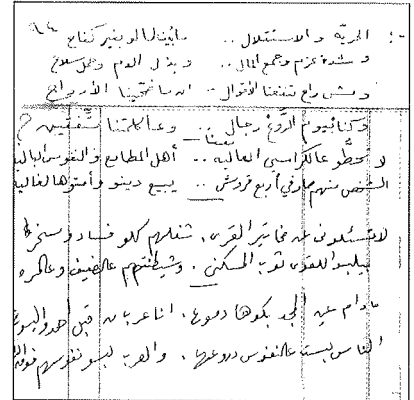 -: الحريّة والاستقلال .. ما بينالا لو بغير كفاح ٩٤
وشدة عزم وجمع المال .. وبذل الدم وحمل سلاح
ومش راح تنفعنا الأقوال .. ان ما ضحّينا الأرواح
وكنا بيوم الروع رجال .. وعا كلمتنا متّفقين
لا تحطّو عالكراسي العاليه .. أهل المطامع والنفوس الباليه
بعنا
الشخص منهم صار في أربع قروش .. يبيع دينو وأمتو هالغاليه
لا تسئلوني عن مخاتير القرى . شغلهم كلو فساد ومسخره
بيلبسوا للقوي ثوب المسكني . وشيطنتهم عالضعيف وعالمره
ما دام عين المجد بكوها دموع . انا عربان قبل
الناس لبست عالنفوس دروعها . والعرب لبسو نفوسهم فوق